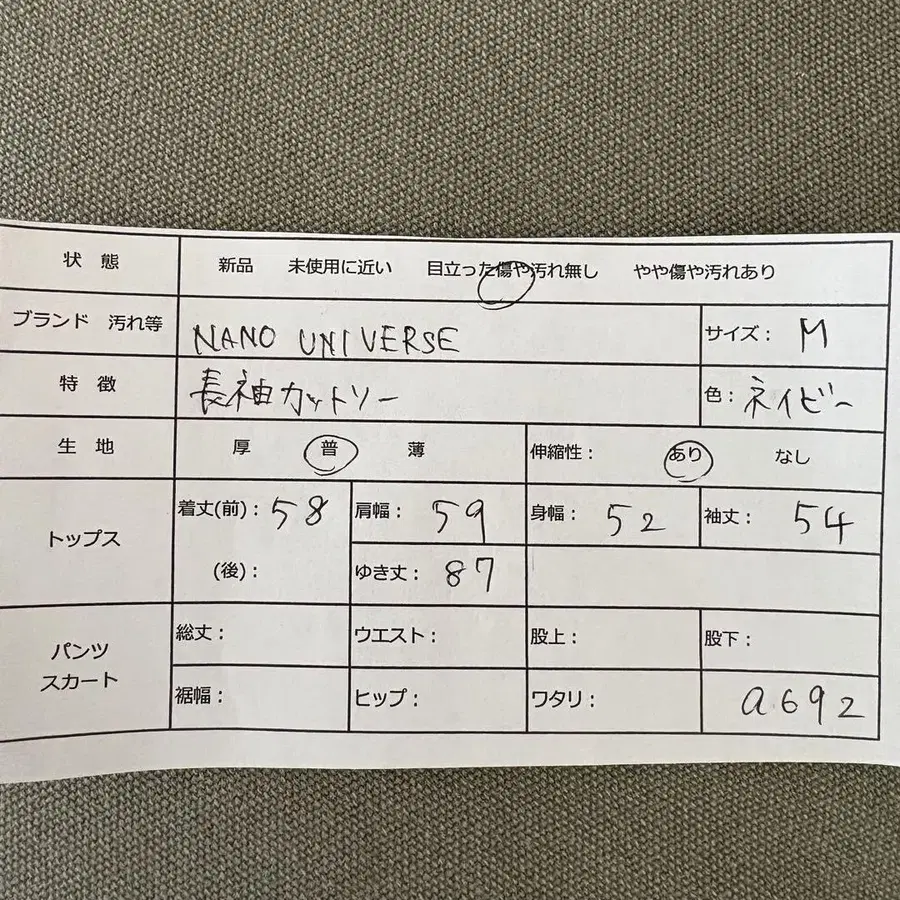 状 態 新品 未使用に近い 目立った傷や汚れ無し やや傷や汚れあり
ブランド 汚れ等 NANO UNIVERSE サイズ： M
特 徴 長袖カットソー 色： ネイビー
生 地 厚 普 薄 伸縮性： あり なし
トップス 着丈(前)： 58 肩幅： 59 身幅： 52 袖丈： 54
(後)： ゆき丈： 87
パンツ スカート 総丈： ウエスト： 股上： 股下：
裾幅： ヒップ： ワタリ： a692